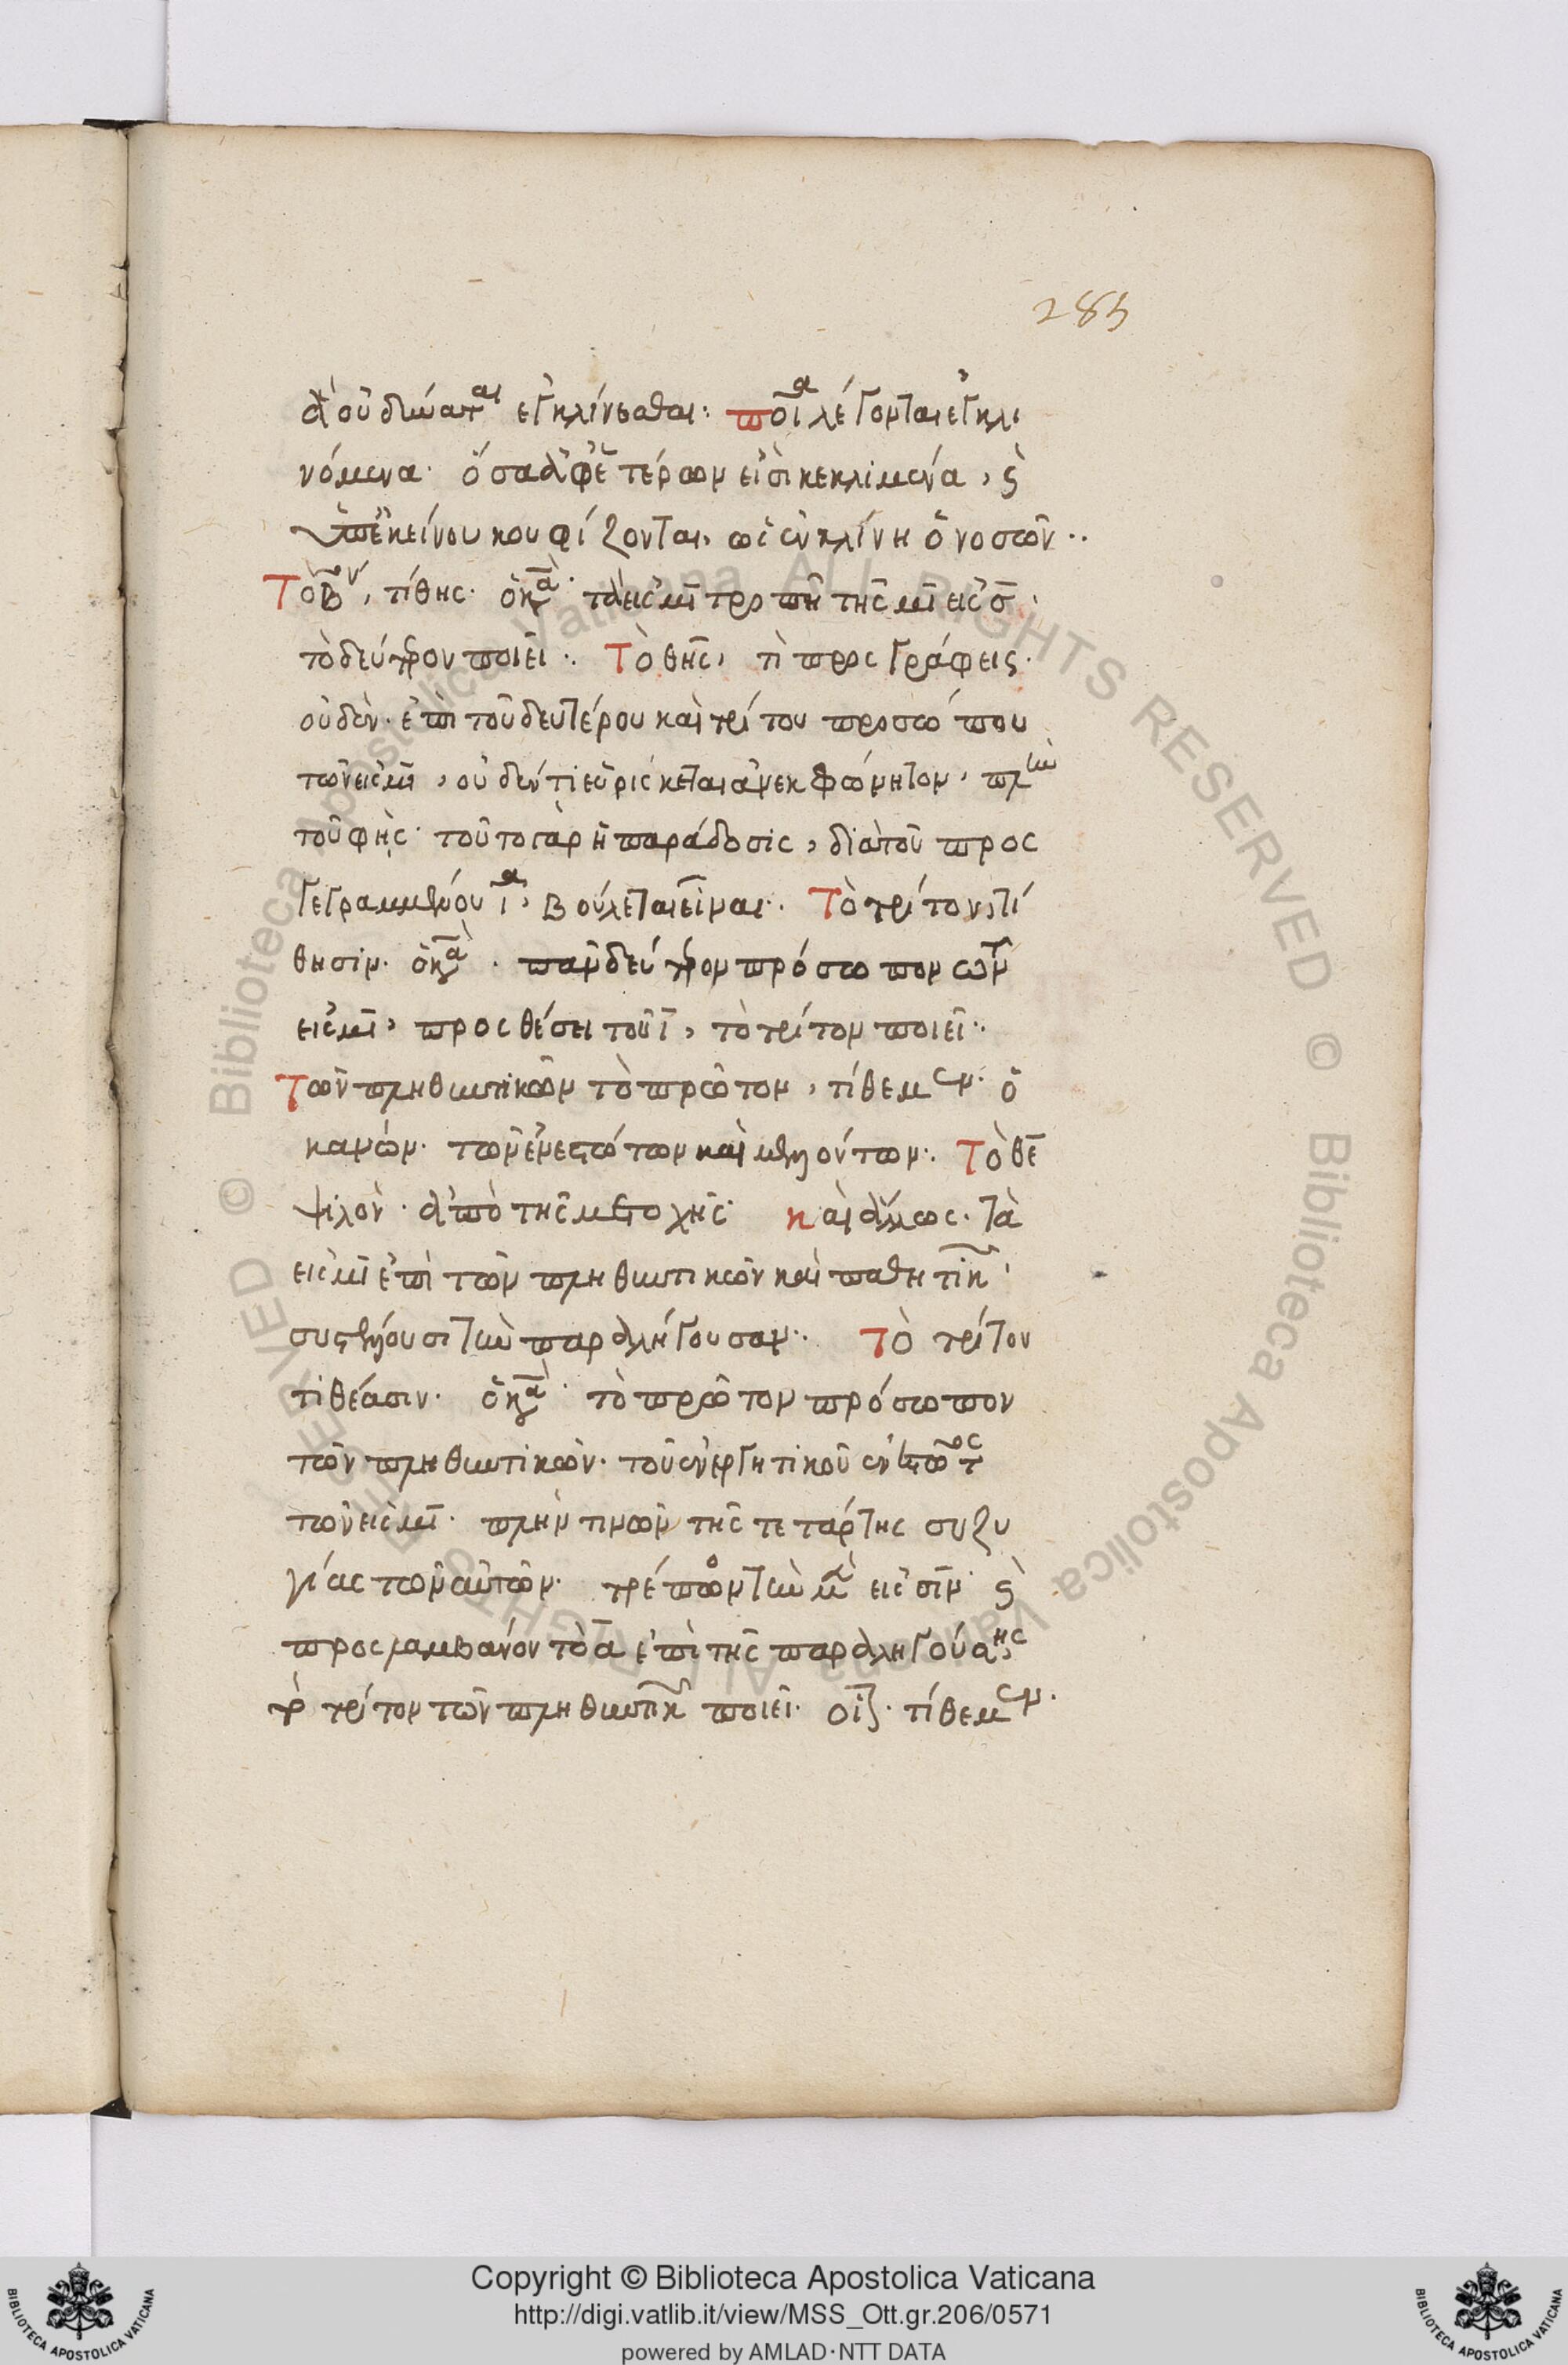 283
ἃ οὐ δύναται ἐγκλίνεσθαι: ποῖα λέγονται ἐγκλι
νόμενα· ὅσα ἀφ' ἑτέρων εἰσὶ κεκλιμένα, καὶ
ὑπ' ἐκείνου κουφίζονται, ὡς ἐν κλίνῃ ὁ νοσῶν··
Τὸ β^ον, τίθης· ὁ κα· τὰ εἰς μι τροπῇ τῆς μι εἰς σ·
τὸ δεύτερον ποιεῖ·. Τὸ θης, τί προσγράφεις·
οὐδέν· ἐπὶ τοῦ δευτέρου καὶ τρίτου προσώπου
τῶν εἰς μι, οὐδέν τι εὑρίσκεται ἀνεκφώνητον, πλὴν
τοῦ φῄς· τοῦτο γὰρ ἡ παράδοσις, διὰ τοῦ προσ
γεγραμμένου ι^α, βούλεται εἶναι·. Τὸ τρίτον, τί
θησιν· ὁ κα· πᾶν δεύτερον πρόσωπον τῶν
εἰς μι, προσθέσει τοῦ ι, τὸ τρίτον ποιεῖ·.
Τῶν πληθυντικῶν τὸ πρῶτον, τίθεμεν· ὁ
κανών· τῶν ἐνεστώτων καὶ μενόντων·. Τὸ θε
ψιλόν· ἀπὸ τῆς μετοχῆς· καὶ ἄλλως· τὰ
εἰς μι ἐπὶ τῶν πληθυντικῶν καὶ παθητικ
συστέλλουσι τὴν παραλήγουσαν·. Τὸ τρίτον
τιθέασιν· ὁ κα· τὸ πρῶτον πρόσωπον
τῶν πληθυντικῶν· τοῦ ἐνεργητικοῦ ἐνεστῶτος
τῶν εἰς μι· πλὴν τινῶν τῆς τετάρτης συζυ
γίας τῶν αὐτῶν· τρέπον τὴν μεν εἰς σιν· καὶ
προσλαμβάνον τὸ α ἐπὶ τῆς παραληγούσης
τὸ τρίτον τῶν πληθυντικ ποιεῖ· οἷον· τίθεμεν·
Copyright © Biblioteca Apostolica Vaticana
http://digi.vatlib.it/view/MSS_Ott.gr.206/0571
powered by AMLAD·NTT DATA